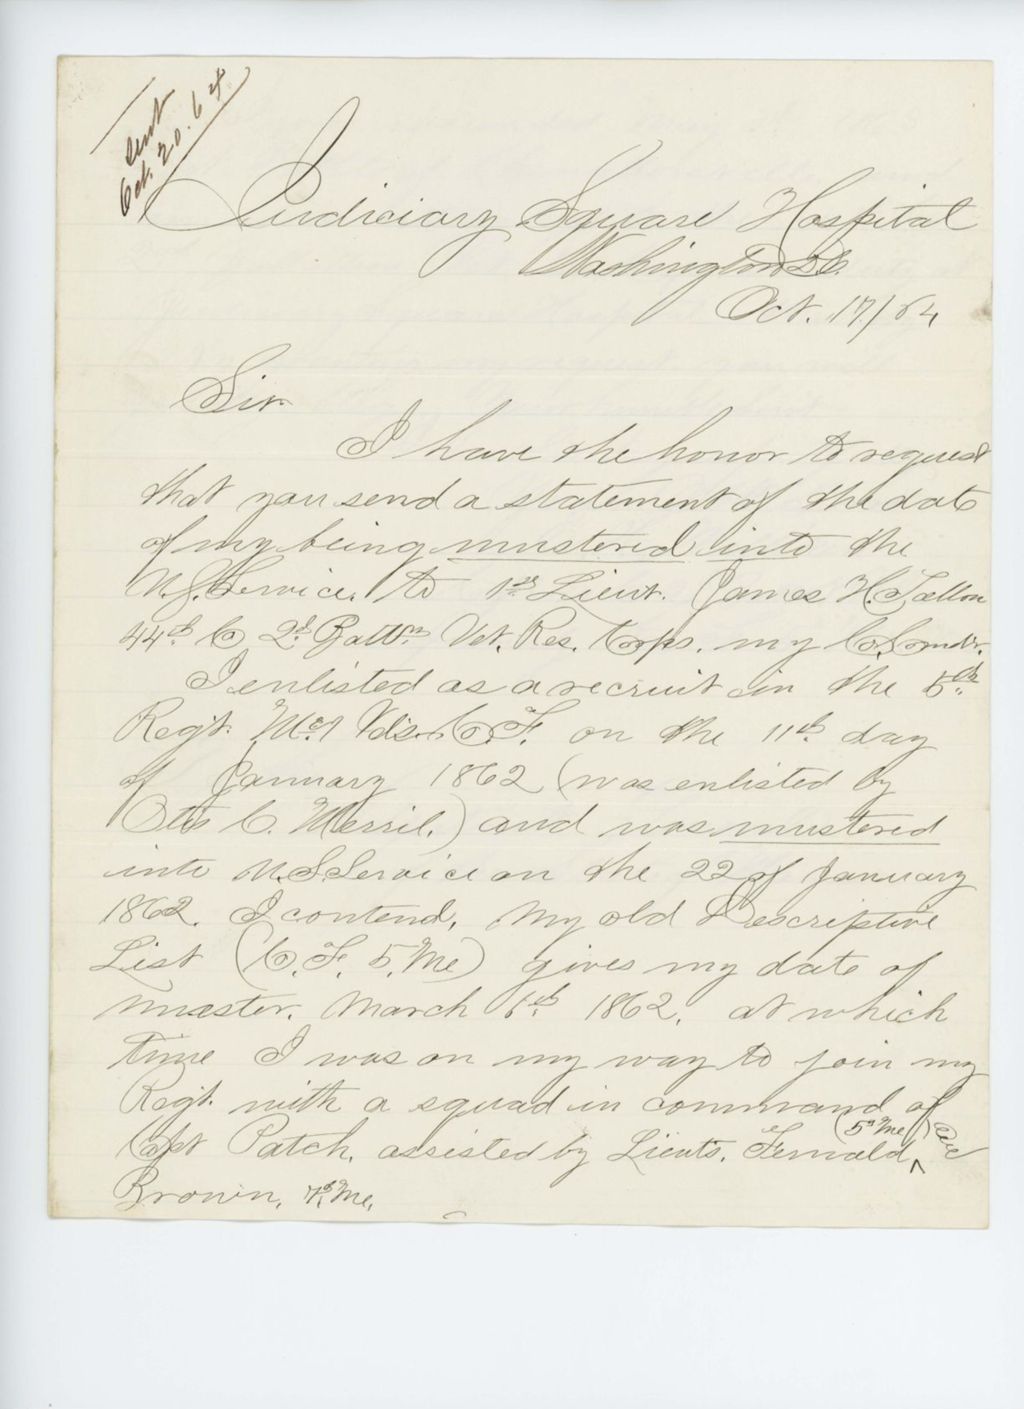 Sent
Oct. 20. 64.
Judiciary Square Hospital
Washington D.C.
Oct. 17/64
Sir
I have the honor to request
that you send a statement of the date
of my being mustered into the
U.S. Service, to 1st Lieut. James H.
44th Co 2d Battn Vet. Res. Corps. my Co. Comdr.
I enlisted as a recruit in the 5th
Regt. Me Vols. Co. F. on the 11th day
of January 1862 (was enlisted by
Otis C. Merril.) and was mustered
into U.S. Service on the 22 of January
1862. I contend, My old Descriptive
List (Co. F. 5. Me) gives my date of
muster. March 6th 1862, at which
time I was on my way to join my
Regt. with a squad in command of
Capt Patch, assisted by Lieuts. Fernald, (5th Me) and
Brown, 7th Me.